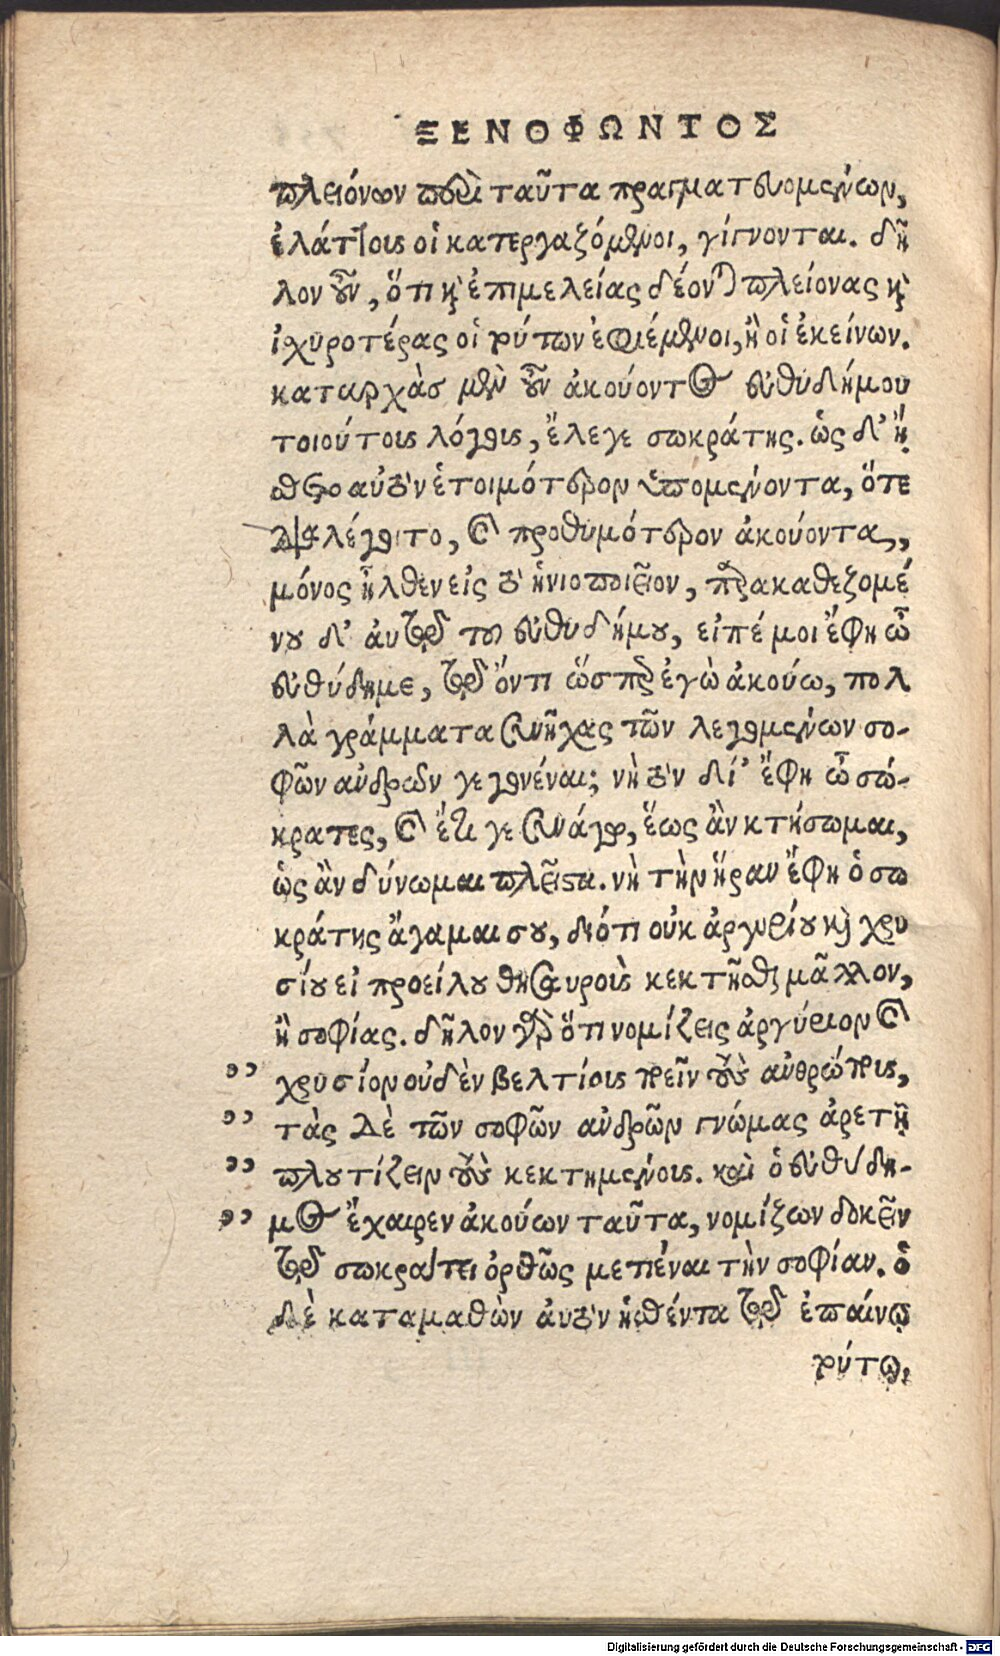 ΞΕΝΟΦΩΝΤΟΣ
πλειόνων περὶ ταῦτα πραγματευομένων,
ἐλάττους οἱ κατεργαζόμενοι, γίγνονται. δῆ
λον οὖν, ὅτι καὶ ἐπιμελείας δέονται πλείονας καὶ
ἰχυροτέρας οἱ τούτων ἐφιέμενοι, ἢ οἱ ἐκείνων.
καταρχὰσ μὲν οὖν ἀκούοντος εὐθυδήμου
τοιούτους λόγους, ἔλεγε σωκράτης. ὡς δ' ᾔ
σθετο αὐτὸν ἑτοιμότερον ὑπομένοντα, ὅτε
διαλέγοιτο, καὶ προθυμότερον ἀκούοντα,
μόνος ἦλθεν εἰς τὸ ἡνιοποιεῖον, παρακαθεζομέ
νου δ' ἀυτῷ τοῦ εὐθυδήμου, εἰπέ μοι ἔφη ὦ
εὐθύδημε, τῷ ὄντι ὥσπερ ἐγὼ ἀκούω, πολ
λὰ γράμματα συνῆχας τῶν λεγομένων σο-
φῶν ἀνδρῶν γεγονέναι; νὴ τὸν δί' ἔφη ὦ σώ-
κρατες, καὶ ἔτι γε συνάγω, ἕως ἂν κτήσωμαι,
ὡς ἂν δύνωμαι πλεῖστα. νὴ τὴν ἥραν ἔφη ὁ σω
κράτης ἄγαμαι σου, διότι οὐκ ἀργυρίου καὶ χρυ
σίου εἰ προείλου θησαυροὺς κεκτῆσθαι μᾶλλον,
ἢ σοφίας. δῆλον γὰρ ὅτι νομίζεις ἀργύριον καὶ
” χρυσίον οὐδὲν βελτίους ποιεῖν τοὺς ἀνθρώπους,
” τὰς δὲ τῶν σοφῶν ἀνδρῶν γνώμας ἀρετῇ
” πλουτίζειν τοὺς κεκτημένους. καὶ ὁ εὐθύδη-
” μος ἔχαιρεν ἀκούων ταῦτα, νομίζων δοκεῖν
τῷ σωκράτει ὀρθῶς μετιέναι τὴν σοφίαν. ὁ
δὲ καταμαθὼν ἀυτὸν ἡσθέντα τῷ ἐπαίνῳ
τούτῳ,
Digitalisierung gefördert durch die Deutsche Forschungsgemeinschaft - DFG